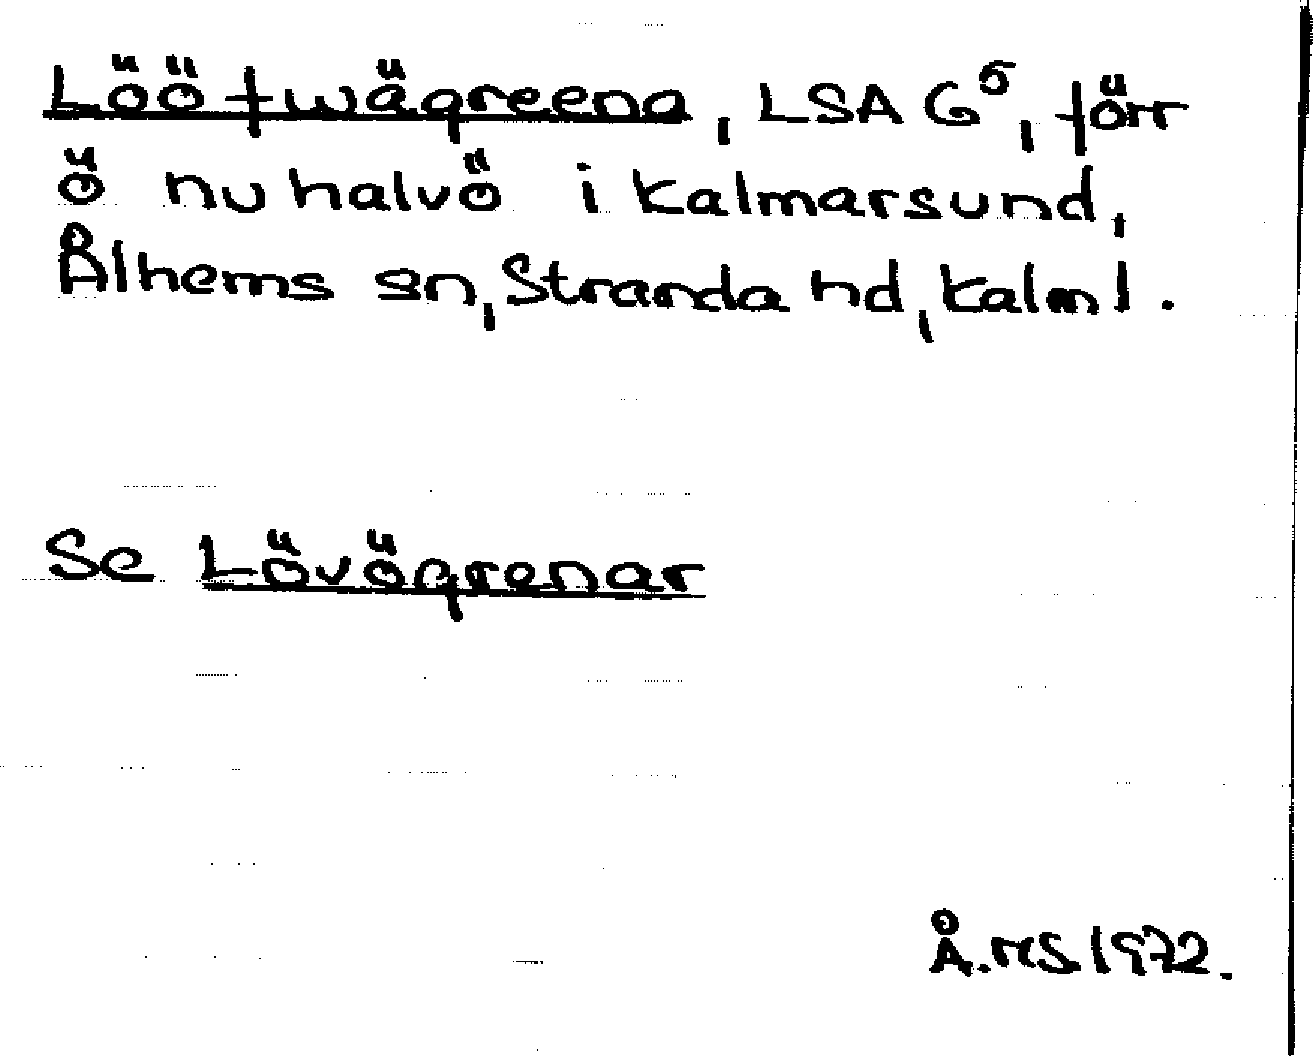 Löö fwägreena, LSA G⁵, förr
ö nu halvö i Kalmarsund,
Ålhems sn, Stranda hd, Kalm l.
Se Lövögrenar
Å.MS 1972.